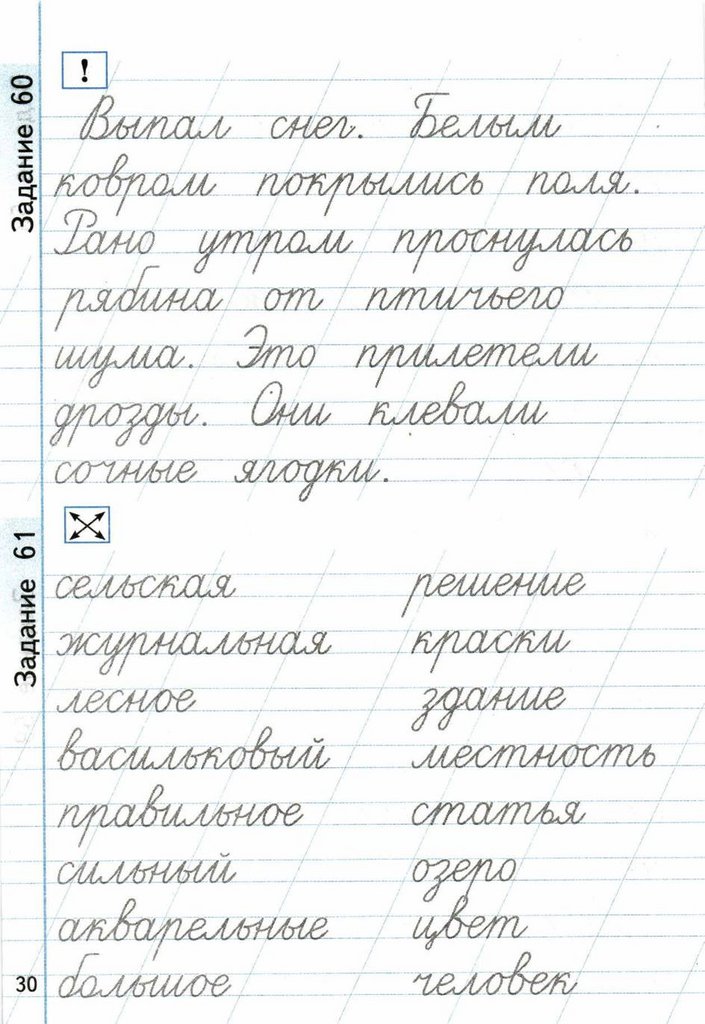 Задание 60
!
Выпал снег. Белым
ковром покрылись поля.
Рано утром проснулась
рябина от птичьего
шума. Это прилетели
дрозды. Они клевали
сочные ягодки.
Задание 61
сельская решение
журнальная краски
лесное здание
васильковый местность
правильное статья
сильный озеро
акварельные цвет
большое человек
30